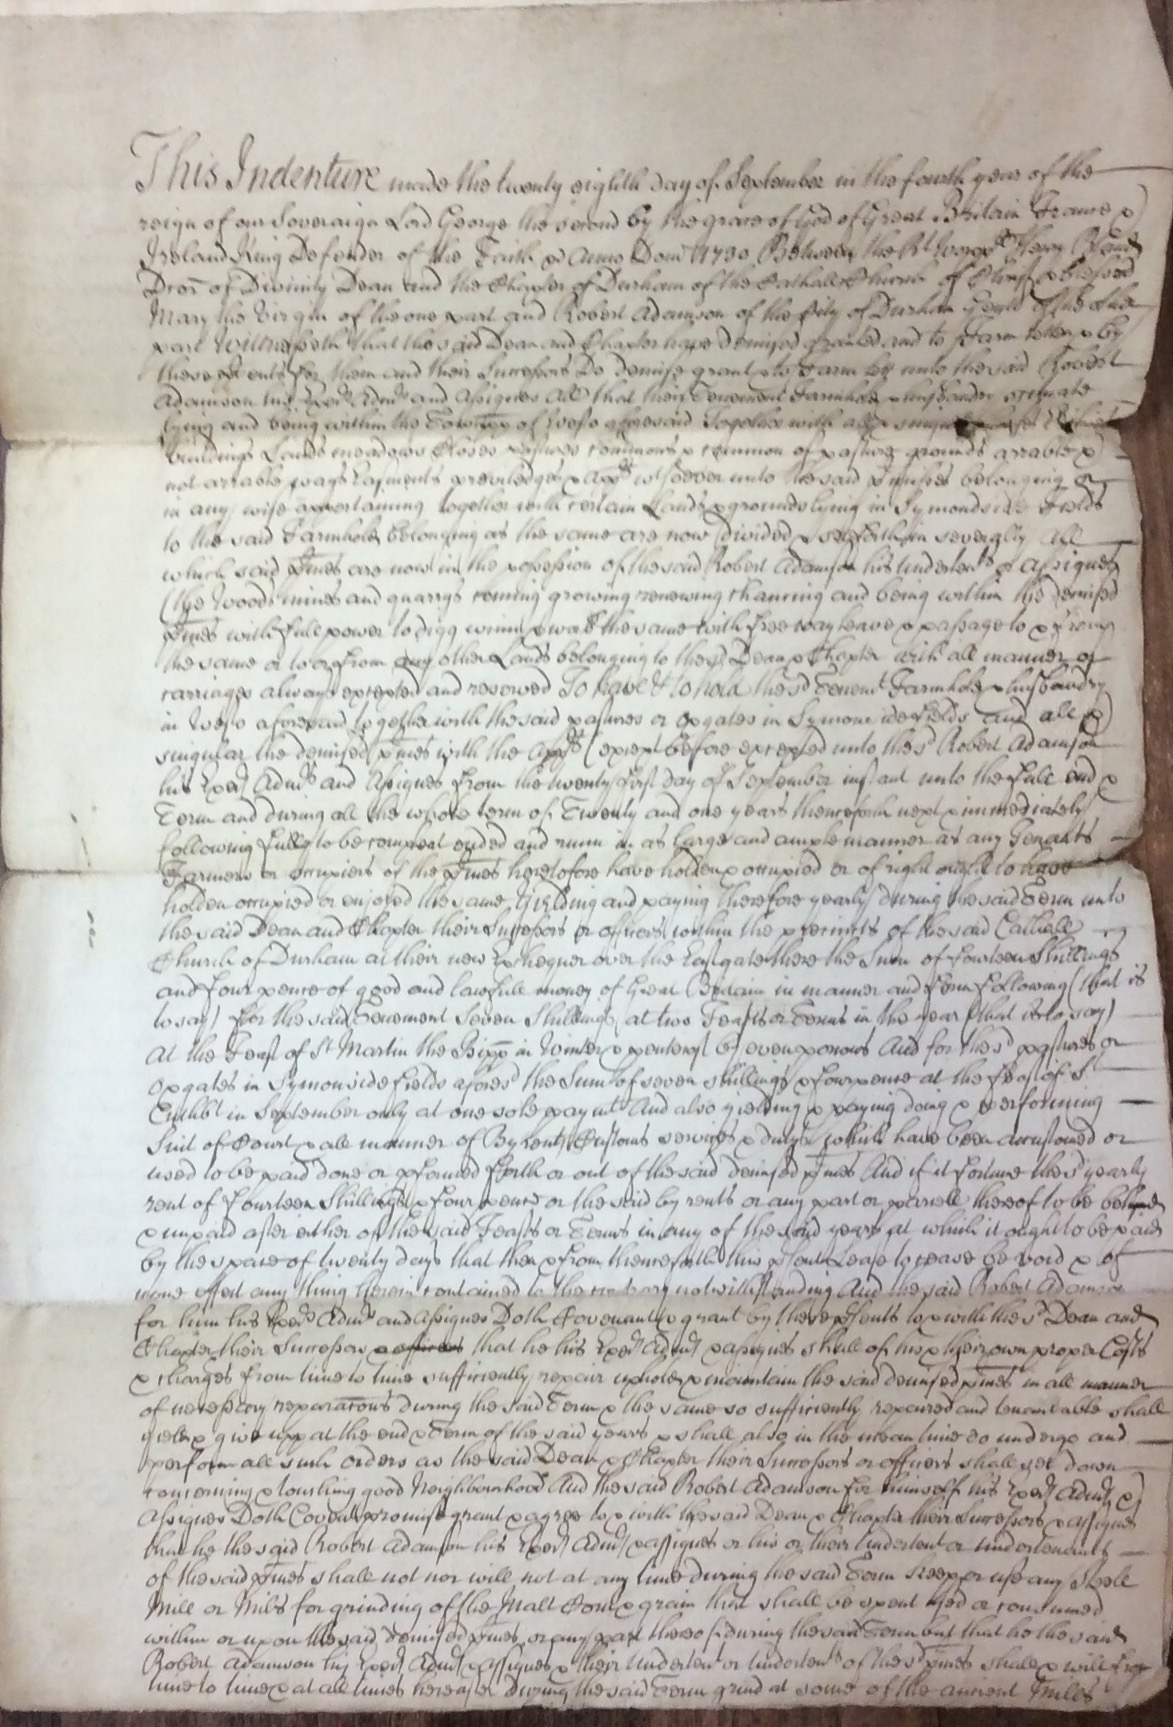 This Indenture made the twenty eighth day of September in the fourth year of the
reign of our Soveraign Lord George the second by the grace of God of Great Britain France &
Ireland King Defender of the Faith & Anno Dom 1730 Between the Rt Worpp Henry Bland
Docr of Divinity Dean and the Chapter of Durham of the Cathall Church of Christ & blessed
Mary the Virgin of the one part and Robert Adamson of the City of Durham Gent of the other
part Witnesseth that the said Dean and Chapter have Demised granted and to Farm letten & by
these psents for them and their Successors Do demise grant & to Farm let unto the said Robert
Adamson his Execrs Admrs and Assignes All that their Tenement Farmhold & husbandry scituate
lying and being within the Township of aforesaid Together with all & singular
buildings Lands meadows Closes pastures commons & common of pasture grounds arrable &
not arrable ways Easments previledges & Appts wtsoever unto the said pmisses belonging or
in any wise appertaining together with certain Lands & grounds lying in Symondside Fields
to the said Farmhold belonging as the same are now divided & sett forth in severalty All
which said pmes are now in the possession of the said Robert Adamson his undertents or Assignes
(the Woods mines and quarrys coming growing renewing chancing and being within the demised
pmes with full power to digg winn & work the same with free way leave & passage to & from
the same or to or from any other Lands belonging to the sd Dean & Chapter with all manner of
carriages always excepted and reserved To have & to hold the sd Tenemt Farmhold & husbandry
in aforesaid together with the said pastures or Oxgates in Symondside Fields and all &
singular the demised pmes with the Appts (except before excepted unto the sd Robert Adamson
his Execrs Admrs and Assignes from the twenty first day of September instant unto the full end &
Term and during all the whole term of Twenty and one years thenceforth next & immediately
following fully to be compleat ended and runn in as large and ample manner as any Tenants
Farmers or occupiers of the pmes heretofore have holden & occupied or of right ought to have
holden occupied or enjoyed the same yielding and paying therefore yearly during the said Term unto
the said Dean and Chapter their Successors or officers within the precincts of the said Cathall
Church of Durham at their new Exchequer over the Eastgate there the Sum of Fourteen Shillings
and four pence of good and lawfull money of Great Britain in manner and form following (that is
to say) for the said Tenement Seven Shillings at two Feasts or Terms in the year (that is to say)
At the Feast of St Martin the Bipp in Winter & pentecost by even porcons And for the sd pastures or
Oxgates in Symonside Fields aforesd the Sum of seven shillings & fourpence at the Feast of St
Cuthbt in September only at one sole paymt And also yielding & paying doing & performing
Suit of Court & all manner of By rents Customs services & dutys which have been accustomed or
used to be paid done or pformed forth or out of the said demised pmes And if it fortune the sd yearly
rent of Fourteen Shillings & Four pence or the said by rents or any part or parcell thereof to be behind
& unpaid after either of the said Feasts or Terms in any of the said years at which it ought to be paid
by the space of twenty days that then & from thenceforth this psent Lease to cease be void & of
none effect any thing herein contained to the contrary notwithstanding And the said Robert Adamson
for him his Execrs Admrs and Assignes Doth Covenant & grant by these psents to & with the sd Dean and
Chapter their Successors & that he his Execrs Admrs & assignes shall of his & their own proper Costs
& charges from time to time sufficiently repair uphold & maintain the said demised pmes in all manner
of necessary reparations during the said Term & the same so sufficiently repaired and tenantable shall
yield & give upp at the end & Term of the said years & shall also in the mean time do undergo and
perform all such orders as the said Dean & Chapter their Successors or officers shall set down
concerning & touching good Neighbourhood And the said Robert Adamson for himself his Execrs Admrs &
Assignes Doth Covent promise grant & agree to & with the said Dean & Chapter their Successors & assignes
that he the said Robert Adamson his Execrs Admrs & assignes or his or their undertent or undertenants
of the said pmes shall not nor will not at any time during the said Term keep or use any Steele
Mill or Mills for grinding of the Malt Corn & grain that shall be spent used or consumed
within or upon the said demised pmes or any part thereof during the said Term but that he the said
Robert Adamson his Execrs Admrs & assignes & their undertent or undertents of the sd pmes shall & will from
time to time & at all times hereafter during the said Term grind at some of the ancient Mills